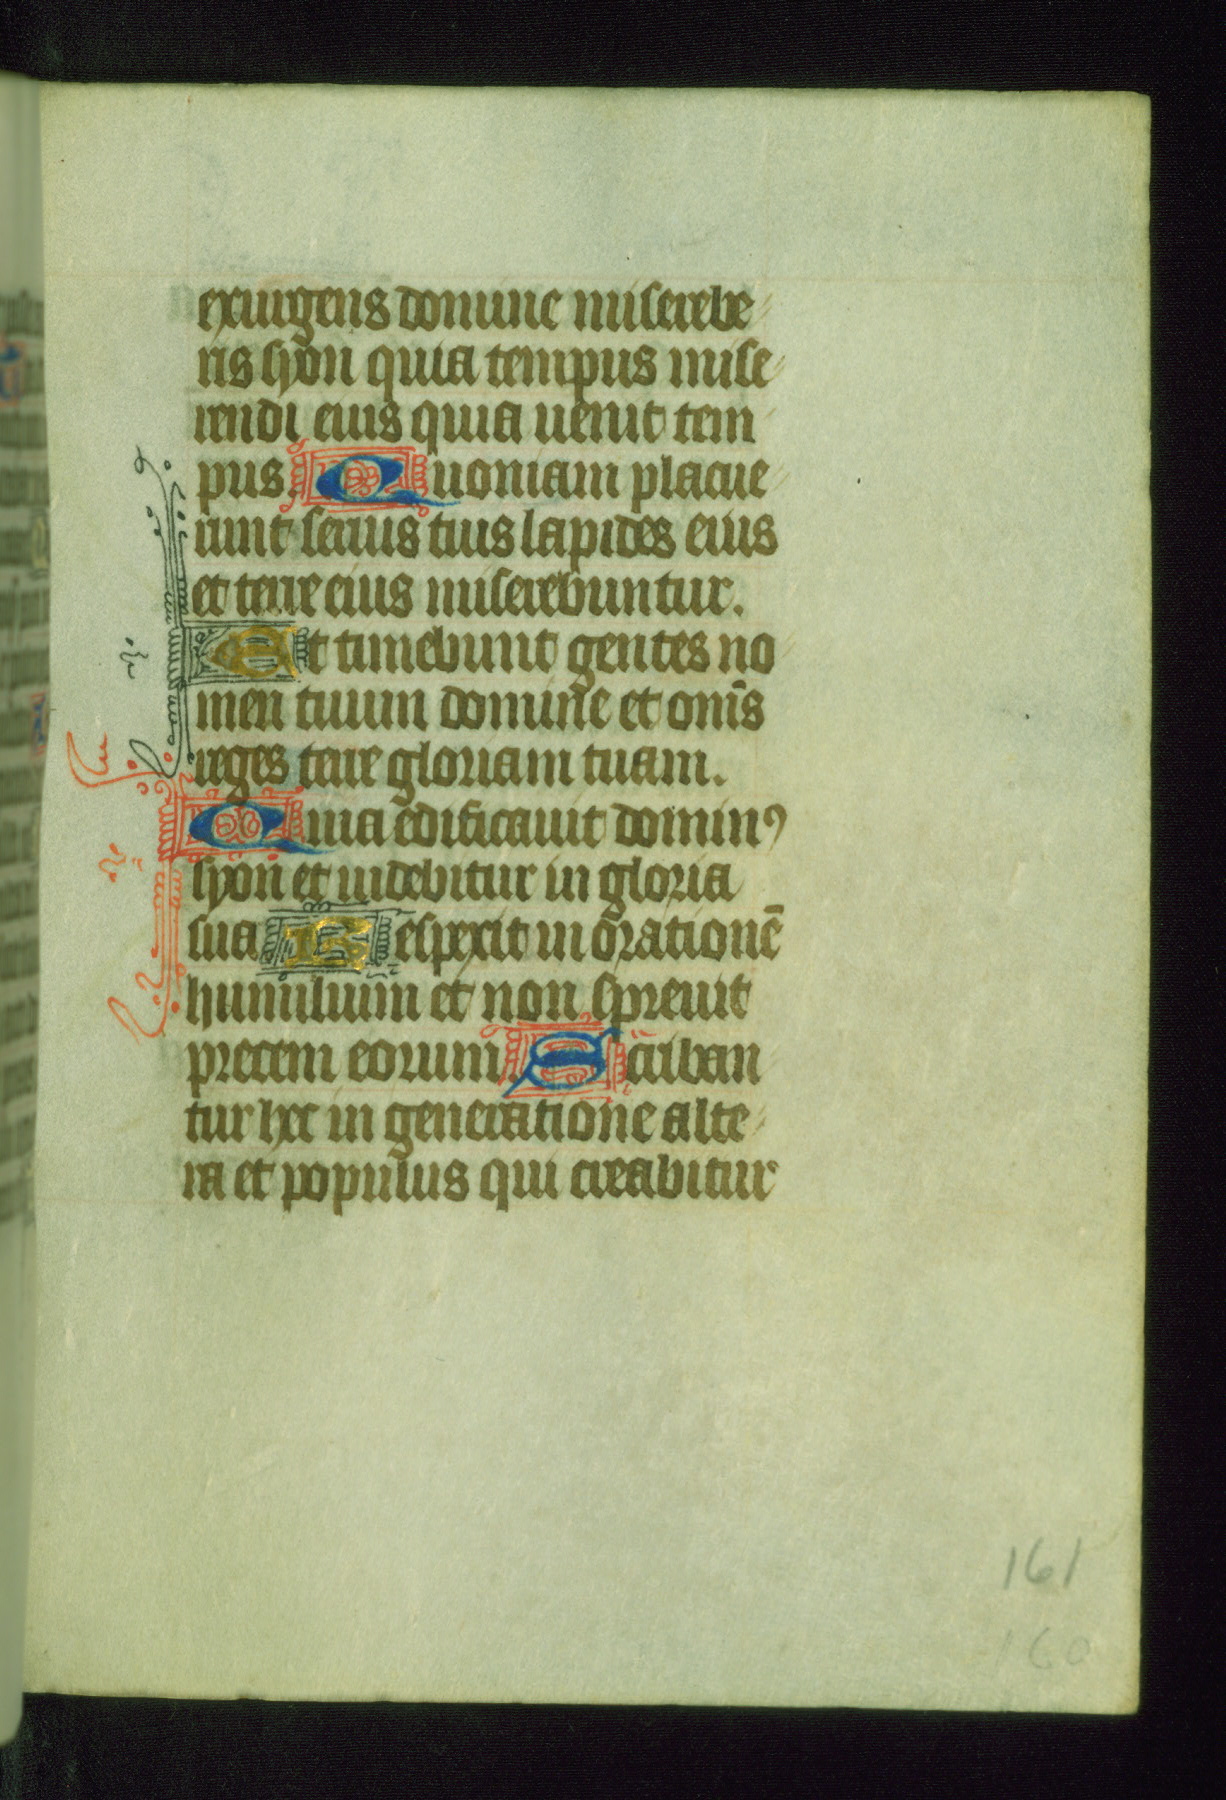 exurgens domine miserebe
ris syon quia tempus mise
rendi eius quia uenit tem
pus. Quoniam placue
runt seruis tuis lapides eius
et terre eius miserebuntur.
Et timebunt gentes no
men tuum domine et om̄s
reges terre gloriam tuam.
Quia edificauit dominꝰ
syon et uidebitur in gloria
sua Respexit in orationē
humilium et non spreuit
precem eorum. Scriban
tur hec in generatione alte
ra et populus qui creabitur
161
160